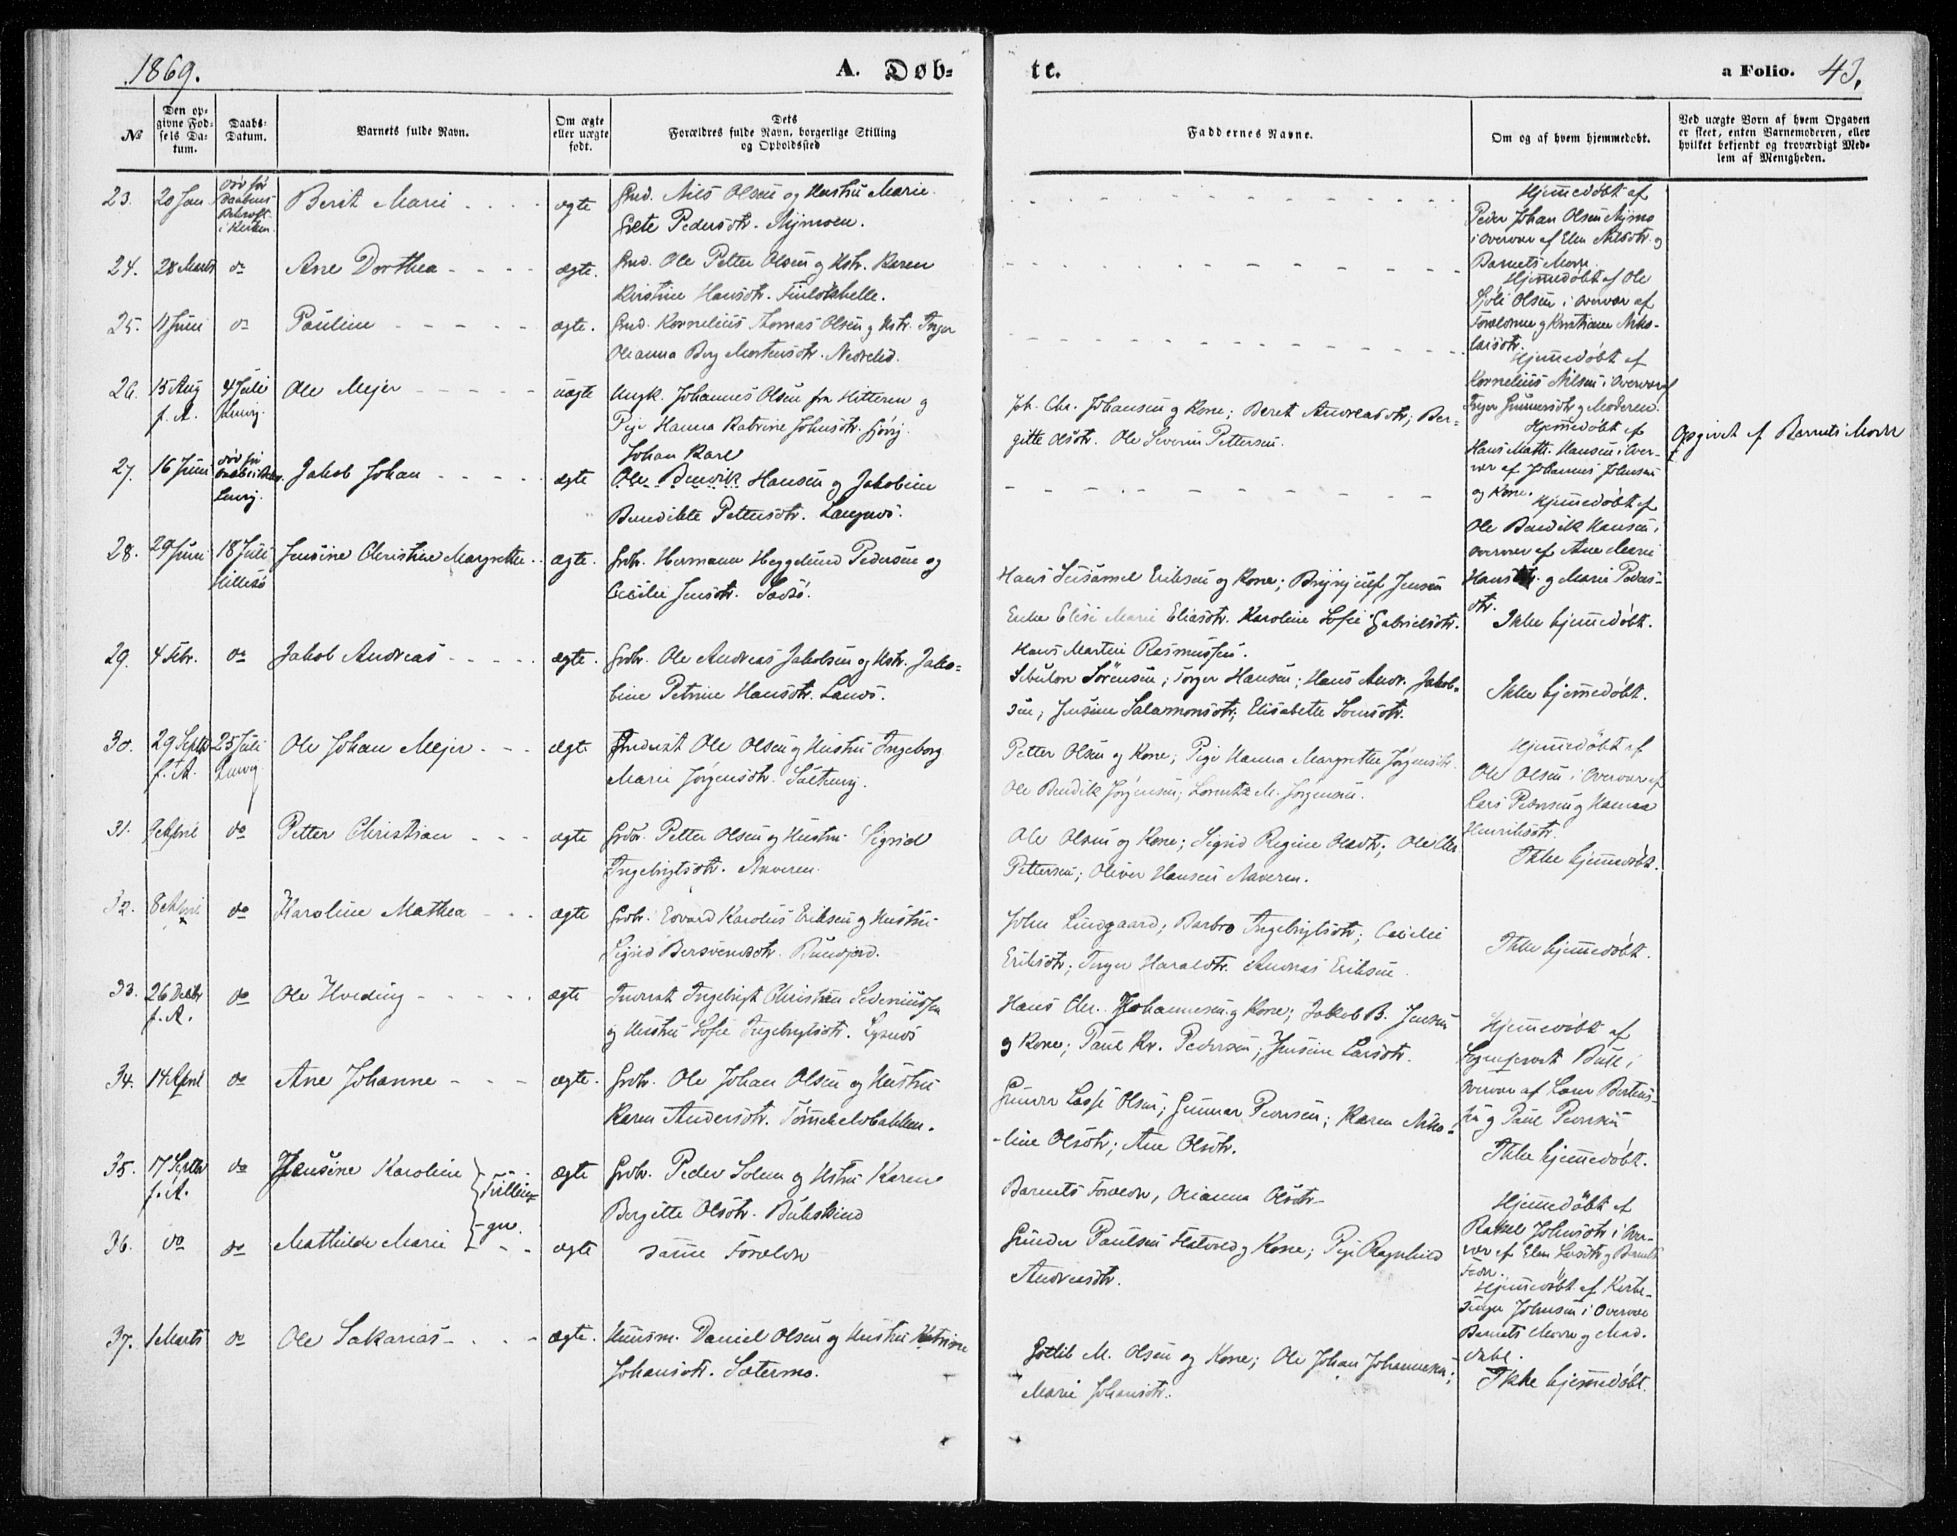 1869.
A. Døb-
te.
a Folio. 43.
№
Den op-
givne Fød-
sels Da-
tum.
Daabs-
Datum.
Barnets fulde Navn.
Om ægte
eller uægte
født.
Dets
Forældres fulde Navn, borgerlige Stilling
og Opholdssted
Faddernes Navne.
Om og af hvem hjemmedøbt.
Ved uægte Børn af hvem Opgaven
er skeet, enten Barnemoderen, eller
hvilket bekjendt og troværdigt Med-
lem af Menigheden.
23. 20 Jan død før Daabens Bekræft. i Kirken Berit Marie ægte Grd. Nils Olsen og Hustru Marie
Grete Pedersdtr.
Hjemmedøbt af
Peder Johan Olsen
i Overvær af Elen Nilsdtr. og
Barnets Moder.
24. 28 Marts do Ane Dorthea ægte. Grd. Ole Petter Olsen og Hstr. Karen
Kirstine Hansdtr.
Hjemmedøbt af Ole
Olsen i Overvær af
Forældrene og Kristiane Niko-
laisdtr.
25. 11 Juni do Pauline ægte. Grd. Kornelius Thomas Olsen og Hstr. Inger
Oleanna Berg Mortensdtr.
Hjemmedøbt af
Kornelius Nilsen i Overvær af
Inger Gunnersdtr og Moderen.
26. 15 Aug f. A. 4 Juli Lenvig. Ole Mejer uægte Ungk. Johannes Olsen fra Hitteren og
Pige Hanna Katrine Johnsdtr.
Joh. Chr. Johansen og Kone; Beret Andreasdtr; Ber-
gitte Olsdtr. Ole Severin Pettersen.
Hjemmedøbt af
Hans Math. Hansen i Over-
vær af Johannes Johnsen
og Kone.
Opgivet af Barnets Moder
27. 16 Juni død før Lenvig. Jakob Johan ægte Johan Karl
Ole Bendik Hansen og Jakobine
Bendikte Pettersdtr. Langnes.
Hjemmedøbt af
Ole Bendik Hansen i
Overvær af Ane Marie
Hansdtr. og Marie Peders-
dtr.
28. 29 Juni 18 Juli Hillesø Jensine Christine Margrethe ægte. Grbr. Hermann Heggelund Pedersen og
Cecilie Jensdtr.
Hans Eriksen og Kone; Brynjulf Jensen
Enke Elise Marie Eliasdtr. Karoline Sofie Gabrielsdtr.
Hans Martin Rasmussen.
Ikke hjemmedøbt.
29. 4 Febr. do Jakob Andreas ægte. Grbr. Ole Andreas Jakobsen og Hstr. Jako-
bine Petrine Hansdtr.
Sebulon Sörensen; Törger Hansen; Hans Andr. Jakob-
sen; Jensine Salamonsdtr; Elisabette
Ikke hjemmedøbt.
30. 29 Septbr f. A. 25 Juli Lenvig Ole Johan Mejer ægte Inderst Ole Olsen og Hustru Ingeborg
Marie Jørgensdtr.
Petter Olsen og Kone; Pige Hanna Margrethe Jørgensdtr.
Ole Bendik Jørgensen; Lorentz M. Jørgensen.
Hjemmedøbt af
Ole Olsen i Overvær af
Lars Pedersen og Hanna
Henriksdtr.
31. April do Petter Christian ægte Grbr. Petter Olsen og Hustru Sigrid
Ingebrigtsdtr. Aaveren.
Ole Olsen og Kone; Sigrid Regine Olsdtr; Ole Chr
Pettersen; Oliver Hansen Aaveren.
Ikke hjemmedøbt.
32. 8 April do Karoline Mathea ægte Grbr. Edvard Karolius Eriksen og Hustru
Sigrid Bersvendsdtr.
John Lindgaard; Barbro Ingebrigtsdtr; Cecilie
Eriksdtr; Inger Haraldtr. Andreas Eriksen.
Ikke hjemmedøbt.
33. 26 Decbr f. A. do Ole Hveding ægte Inderst Ingebrigt Christian
og Hustru Sofie Ingebrigtsdtr. Lysnes
Hans Chr. Johannesen og Kone; Jakob B. Jensen
og Kone; Paul Kr. Pedersen; Jensine Larsdtr.
Hjemmedøbt af
Sognepræst i
Overvær af
og Paul Pedersen
34. 14 April do Ane Johanne ægte. Grbr. Ole Johan Olsen og Hustru
Karen Andersdtr.
Lasse Olsen; Gunnar Pedersen; Karen Niko-
line Olsdtr; Ane Olsdtr.
Ikke hjemmedøbt.
35. 17 Septbr f. A. do Jensine Karoline Tvillin- ægte Grbr. Peder Solem og Hstru Karen
Bergitte Olsdtr. Bukskind
Barnets Forældre, Oleanna Olsdtr.
Hjemmedøbt af
Johnsdtr i Over-
vær af Elen Larsdtr og Barnets
Fader.
36. do do Mathilde Marie ger. ægte samme Forældre
Gunder Paulsen og Kone; Pige Ragnhild
Andreasdtr.
Hjemmedøbt af Kirke-
sanger Johnsen i Overvær
Barnets Moder og Mad.
37. 1 Marts do Ole Sakarias ægte. Huusm. Daniel Olsen og Hustru Katrine
Johansdtr. Sætermo.
Gotlib M. Olsen og Kone; Ole Johan Johannesen;
Marie Johansdtr.
Ikke hjemmedøbt.